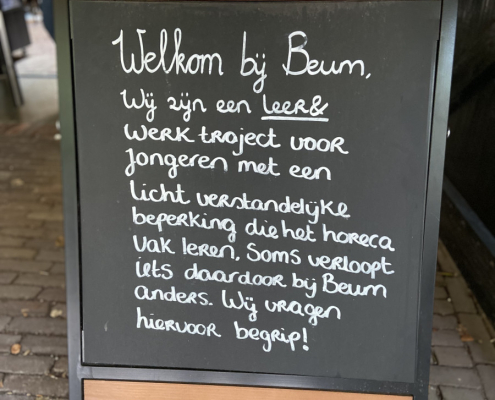 Welkom bij Beum,
Wij zijn een leer&
werk traject voor
Jongeren met een
licht verstandelijke
beperking die het horeca
vak leren. Soms verloopt
iets daardoor bij Beum
anders. Wij vragen
hiervoor begrip!